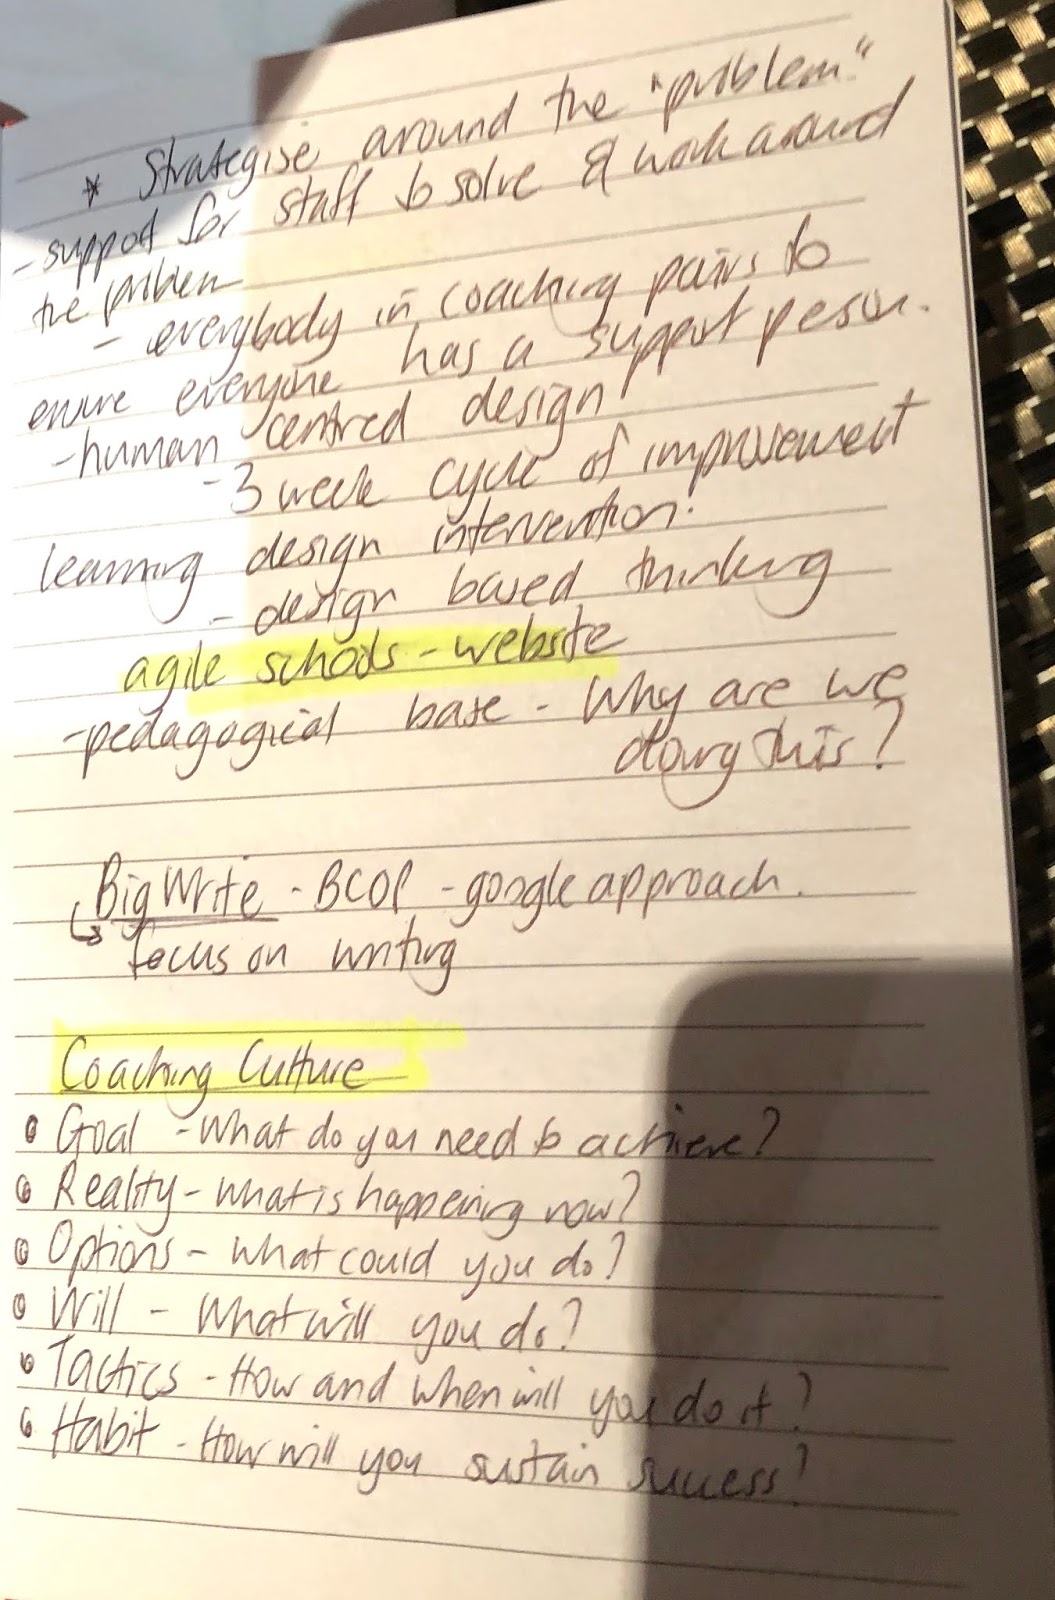 * Strategise around the "problem."
- support for staff to solve & work around
the problem
- everybody in coaching pairs to
ensure everyone has a support person.
- human centred design
- 3 week cycle of improvement
learning design intervention.
- design based thinking
agile schools - website
- pedagogical base - Why are we
doing this?
Big Write - BCOP - google approach.
↳ focus on writing
Coaching Culture
• Goal - What do you need to achieve?
• Reality - What is happening now?
• Options - What could you do?
• Will - What will you do?
• Tactics - How and when will you do it?
• Habit - How will you sustain success?